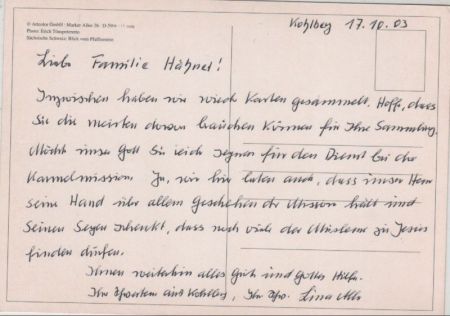 © Artcolor GmbH · Marker Allee 26 · D-59
Photo: Erich Tönspeterotto
Sächsische Schweiz: Blick vom Pfaffenstein
Kohlberg 17.10.03
Liebe Familie Hähnel!
Inzwischen haben wir wieder Karten gesammelt. Hoffe, dass
Sie die meisten davon brauchen können für Ihre Sammlung.
Möcht unser Gott Sie reich segnen für den Dienst bei der
Karmelmission. Ja, wir hier beten auch, dass unser Herr
seine Hand über allem Geschehen der Mission hält und
Seinen Segen schenkt, dass noch viele der Muslime zu Jesus
finden dürfen.
Ihnen weiterhin alles Gute und Gottes Hilfe.
Ihr Schwestern aus Kohlberg, Ihr Schw. Lina